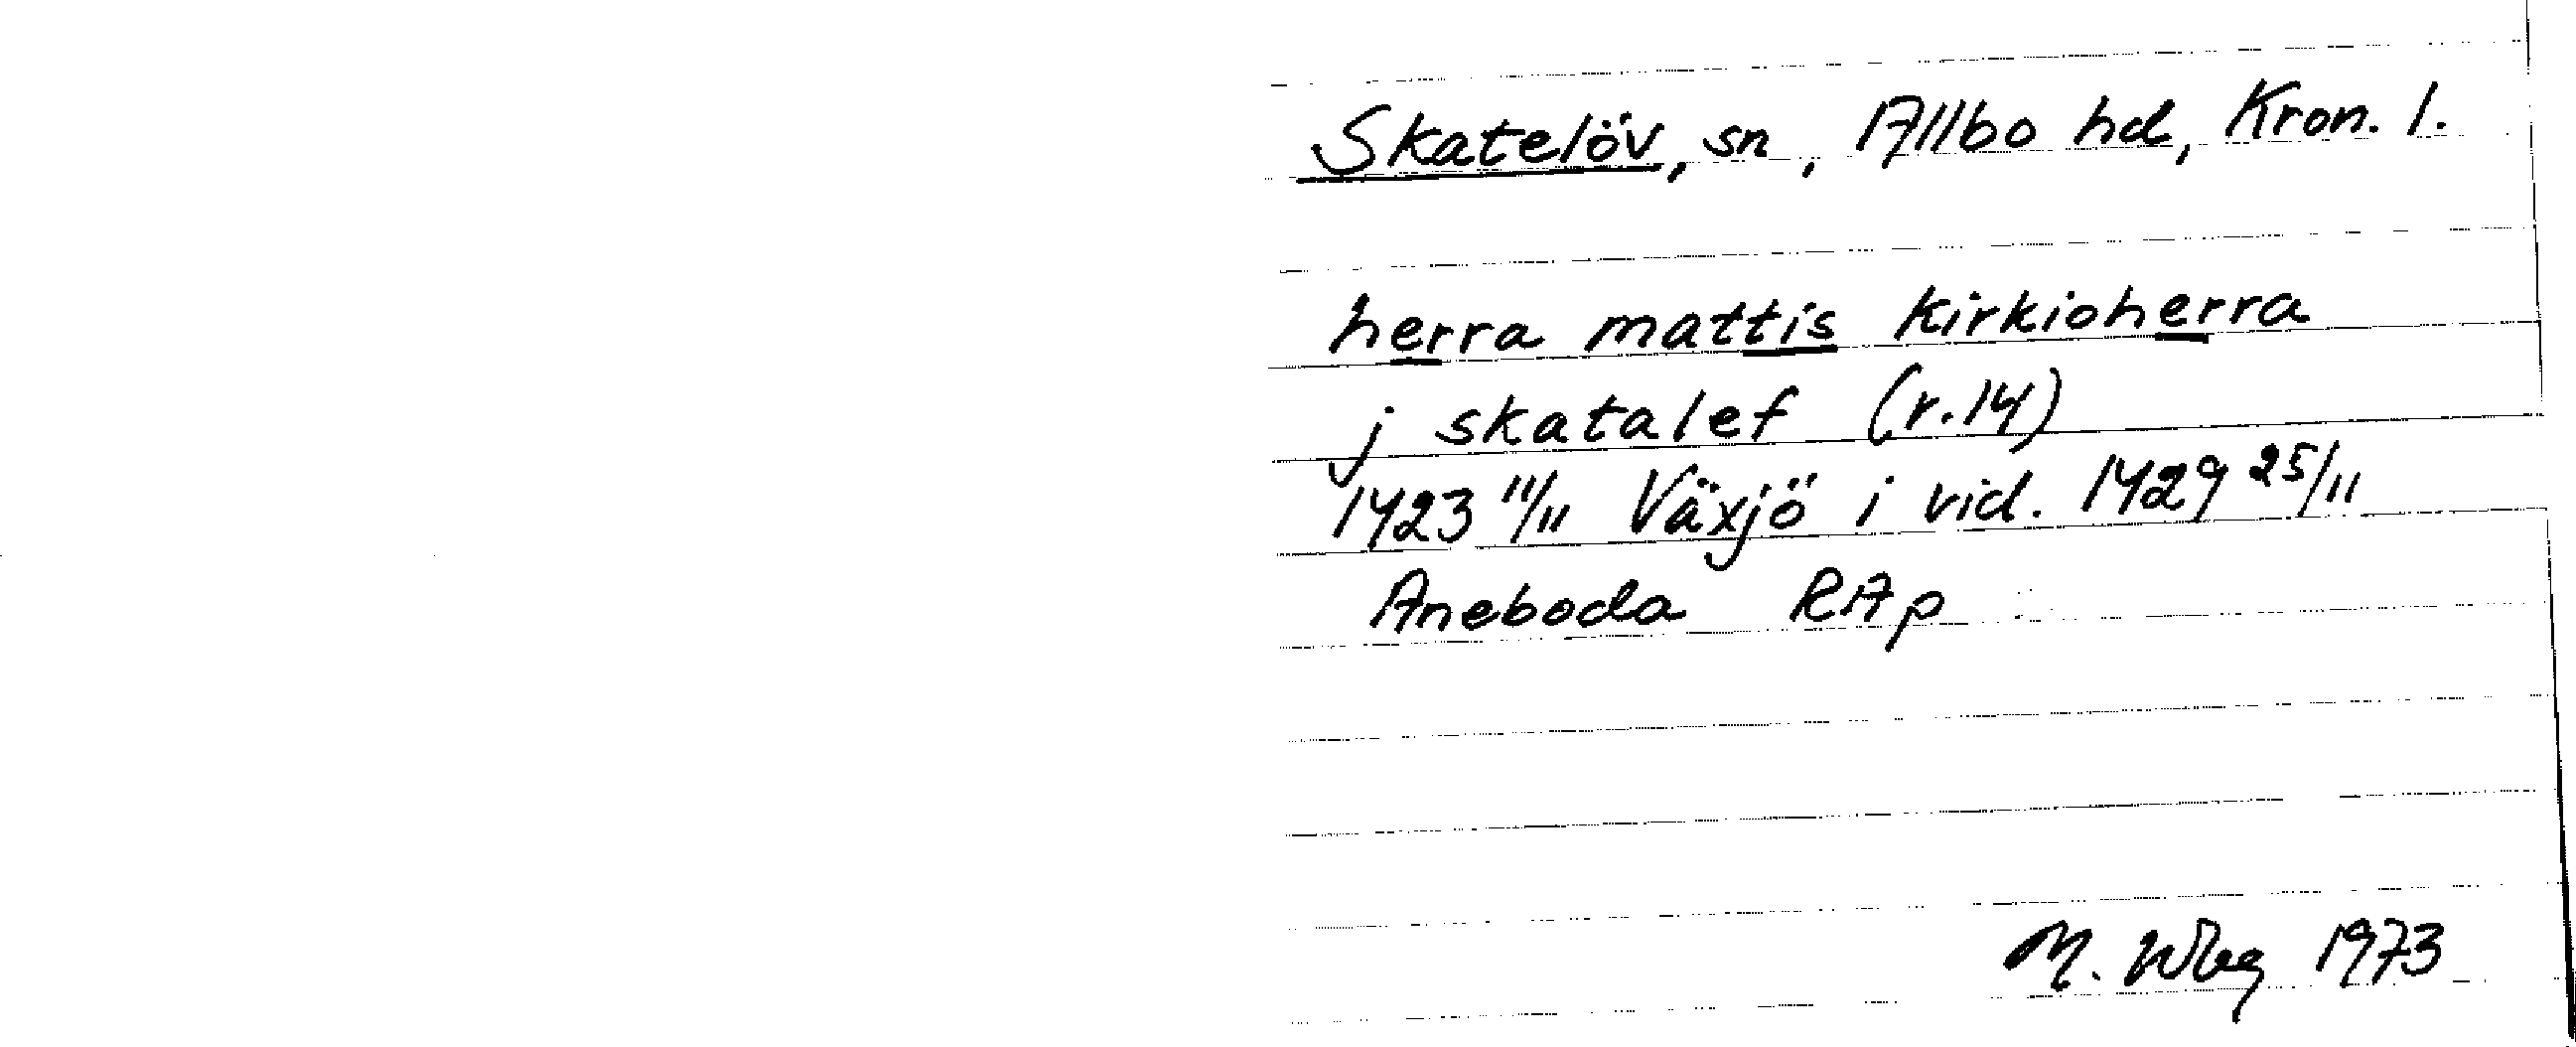 Skatelöv, sn, Allbo hd, Kron. l.
herra mattis kirkioherra
j skatalef (r.14)
1423 11/11 Växjö i vid. 1429 25/11
Aneboda RAp
M. Wbg 1973